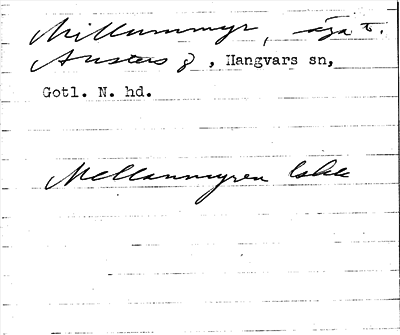 Millummyr, äga t.
Austers g, Hangvars sn,
Gotl. N. hd.
Mellanmyren lokk